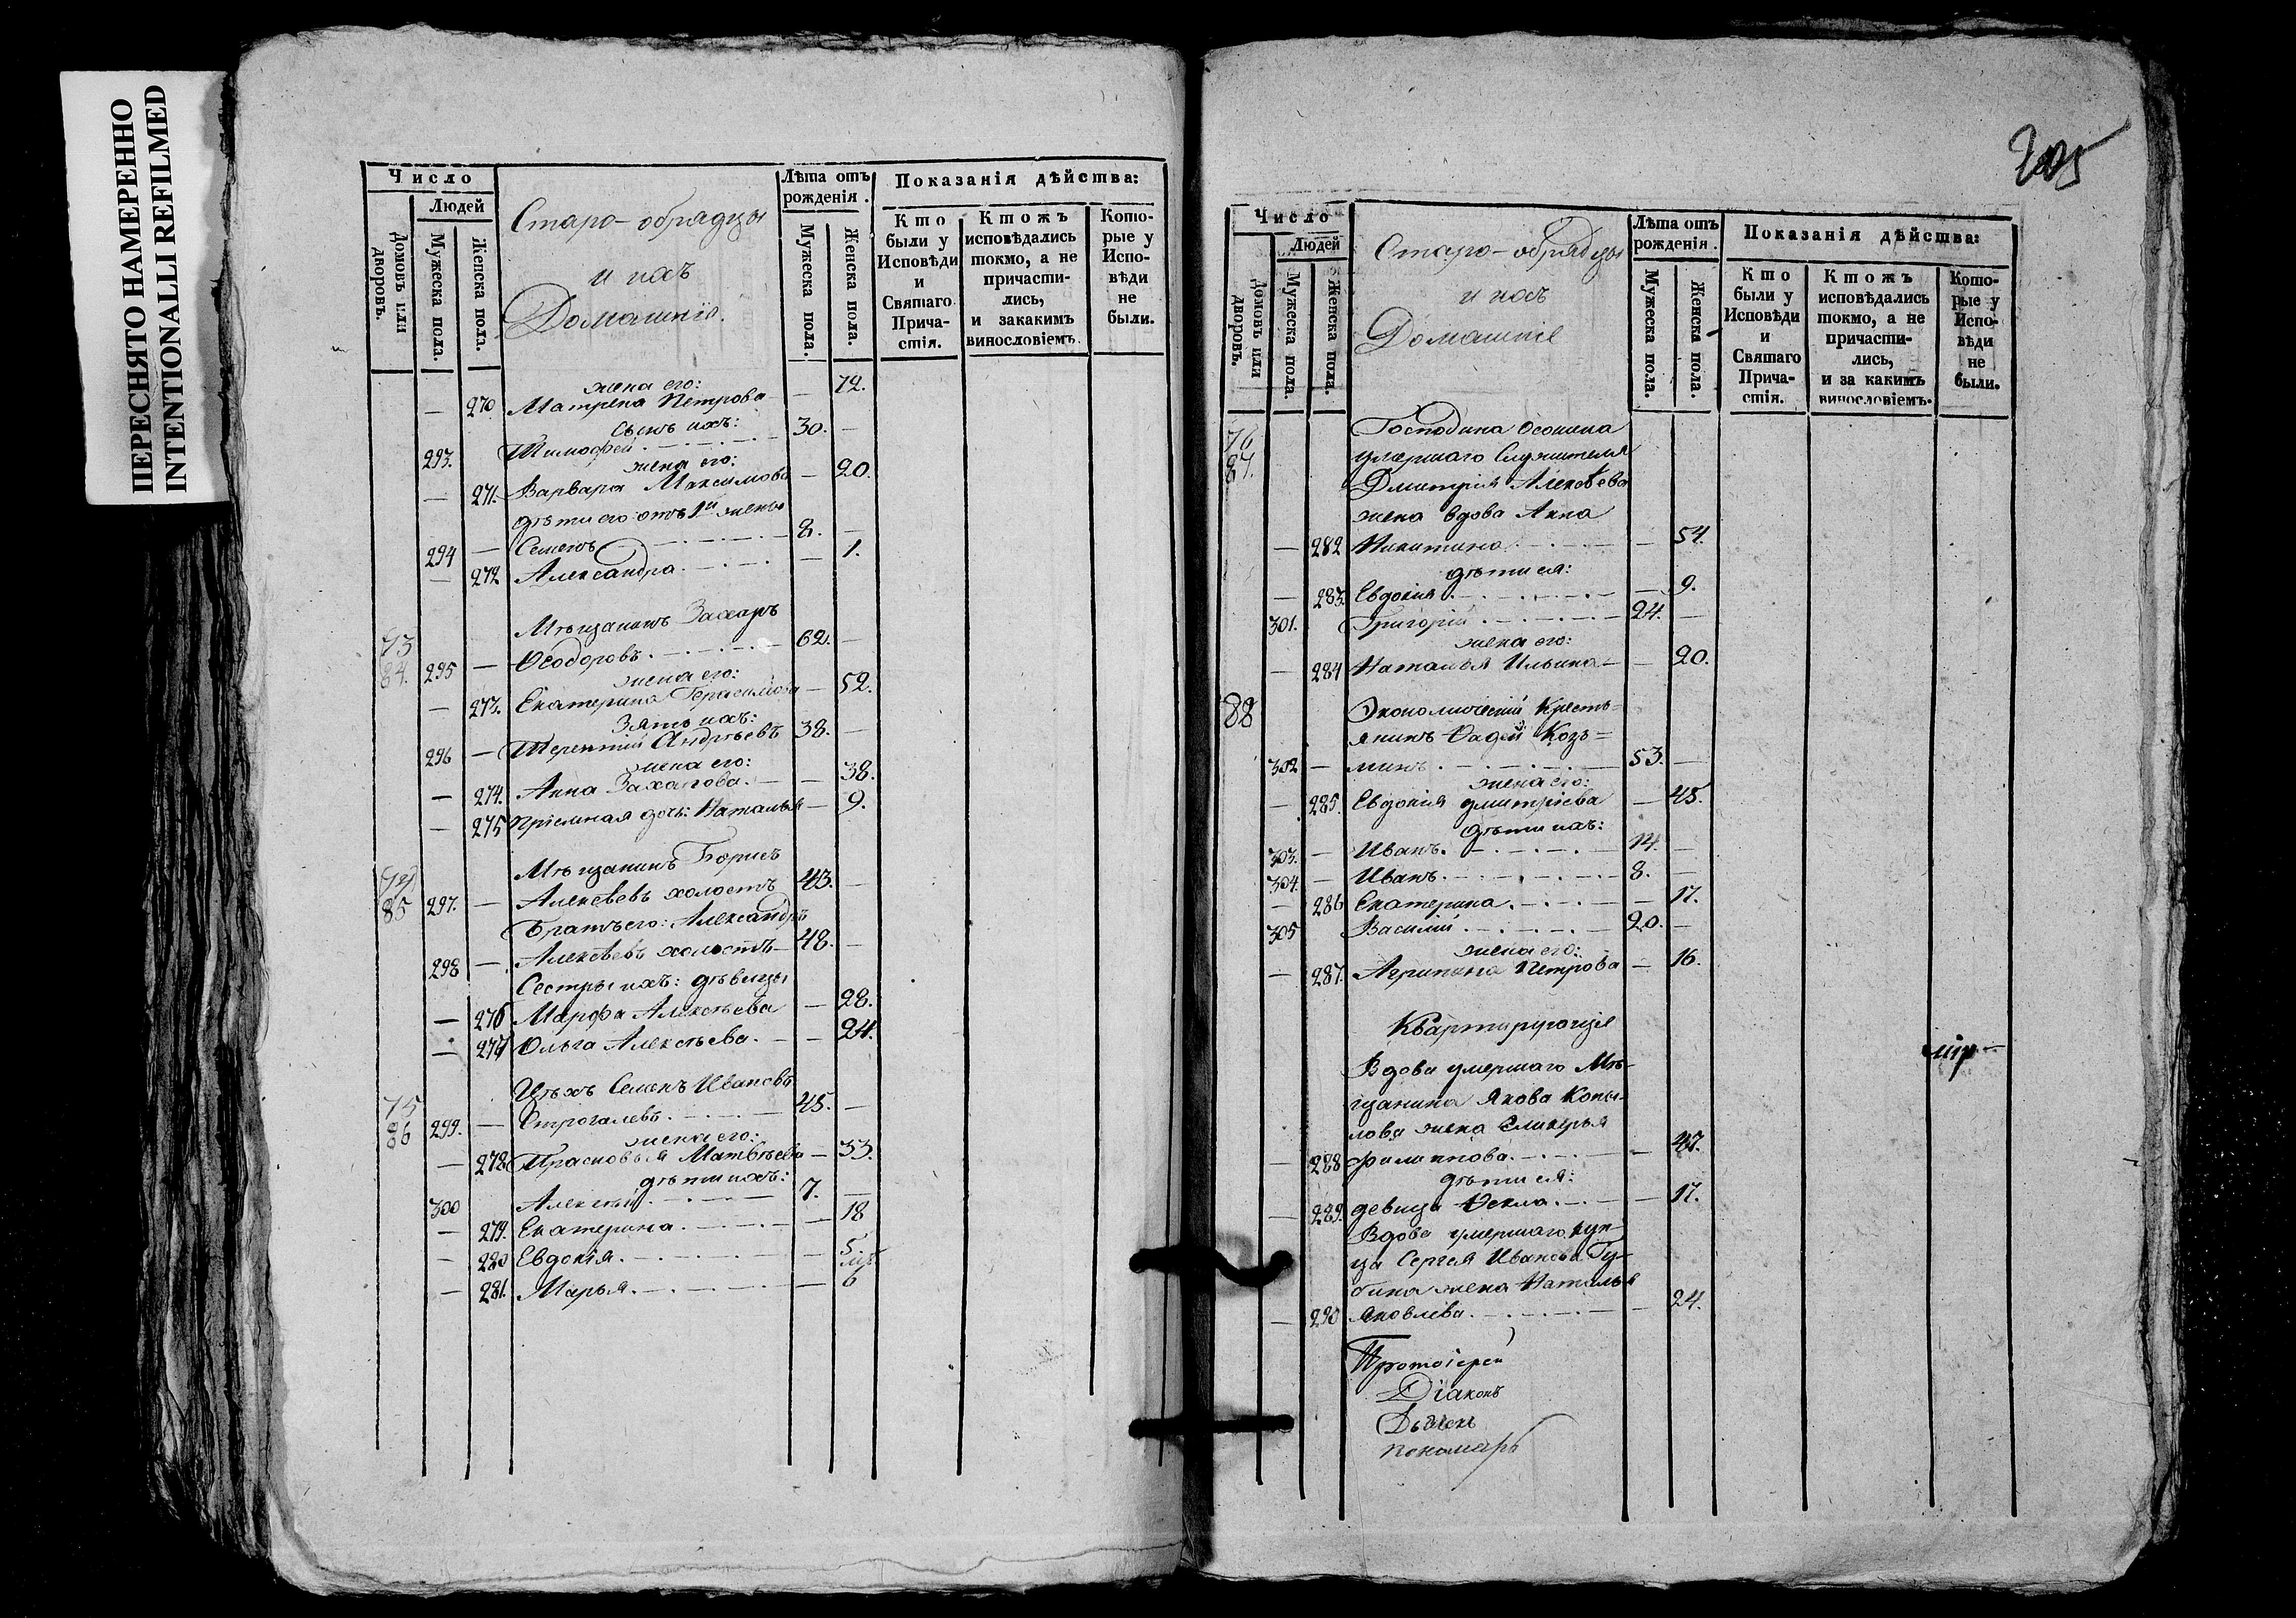 ПЕРЕСНЯТО НАМЕРЕННО
INTENTIONALLI REFILMED
Число
Людей
Домовъ или дворовъ.
Мужеска пола.
Женска пола.
Старо-обрядцы
и ихъ
Домашнія.
Лѣта отъ рожденія.
Мужеска пола.
Женска пола.
Показанія дѣйства:
Кто были у Исповѣди и Святаго Причастія.
Ктожъ исповѣдались токмо, а не причастились, и закакимъ винословіемъ.
Которые у Исповѣди не были.
жена его:
— 270. Матрена Петрова — 72.
сынъ ихъ:
293. Тимофей 30. —
жена его:
— 271. Варвара Максимова — 20.
дѣти его отъ 1й жены
294 — Семенъ 8. —
— 272 Александра — 1.
Мѣщанинъ Захаръ
73
84. 295 — Ѳеодоровъ 62. —
жена его:
— 273. Екатерина Герасимова — 52.
Зять ихъ:
296 — Терентій Андрѣевъ 38. —
жена его:
— 274. Анна Захарова — 38.
— 275 Пріемная дочь: Наталья — 9.
Мѣщанинъ Борисъ
74
85 297. — Алексѣевъ холостъ 43. —
Братъ его: Александръ
298 — Алексѣевъ холостъ 48. —
Сестры ихъ: дѣвицы
— 276 Марфа Алексѣева — 28.
— 277 Ольга Алексѣева — 24.
Цѣхъ Семенъ Ивановъ
75
86 299. — Строгалевъ 45. —
жена его:
— 278 Прасковья Матвѣева — 33.
дѣти ихъ:
300 Алексѣй 7. —
— 279. Екатерина — 18
— 280 Евдокія — 5
— 281. Марья — 6
205
Число
Людей
Домовъ или дворовъ.
Мужеска пола.
Женска пола.
Старо-обрядцы
и ихъ
Домашніе
Лѣта отъ рожденія.
Мужеска пола.
Женска пола.
Показанія дѣйства:
Кто были у Исповѣди и Святаго Причастія.
Ктожъ исповѣдались токмо, а не причастились, и за какимъ винословіемъ.
Которые у Исповѣди не были.
76 Господина Осокина
87. умершаго Служителя
Дмитрія Алексѣева
жена вдова Анна
— 282 Никитина — 54.
дѣти ея:
— 283. Евдокія — 9.
301. Григорій 24. —
жена его:
— 284 Наталья Ильина — 20.
88 Экономическій Кресть=
янинъ Фадей Козь=
302 — минъ 53. —
жена его:
— 285. Евдокія Дмитріева — 45.
Дѣти ихъ:
303. — Иванъ 14. —
304. — Иванъ 8. —
— 286 Екатерина — 17.
305 Василій 20. —
жена его:
— 287. Агрипина Петрова — 16.
Квартирующіе
Вдова умершаго Мѣ-
щанина Якова Копы-
лова жена Гликерья
— 288 филипова — 47.
дѣти ея:
— 289. девица Ѳекла — 17.
Вдова умершаго куп-
ца Сергея Иванова Гу-
бина жена Наталья
— 290 Яковлева — 24.
Протоіерей
Діаконъ
Дьячекъ
пономарь